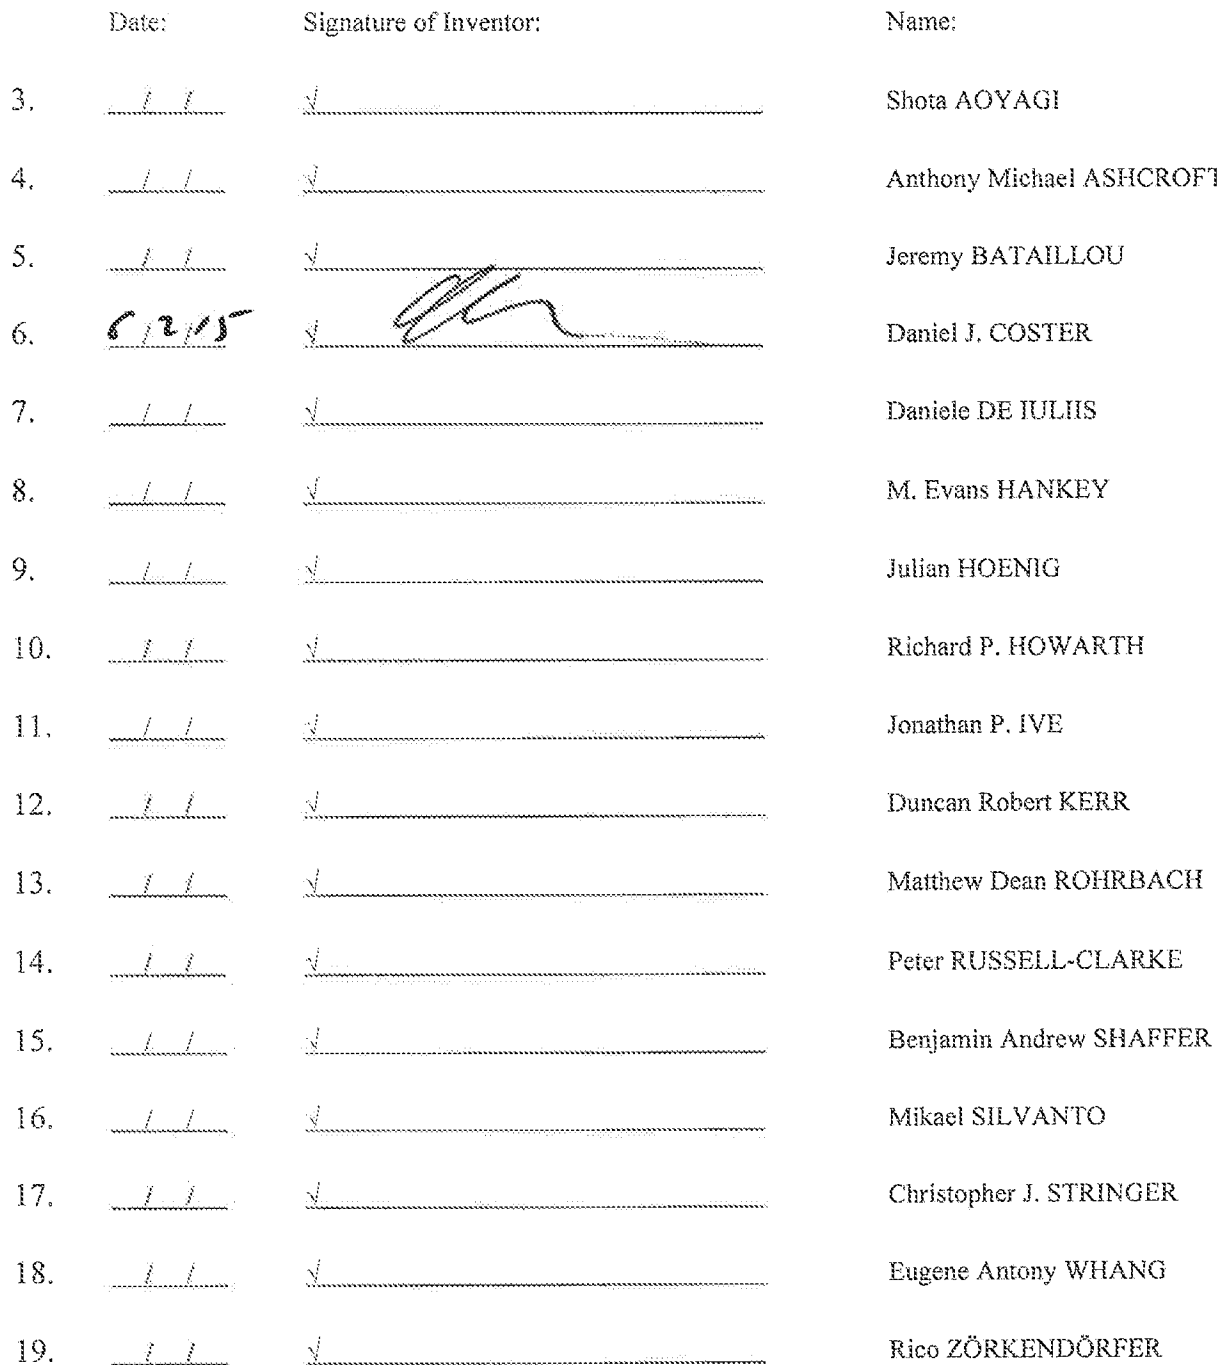 Date: Signature of Inventor: Name:
3. / / √ Shota AOYAGI
4. / / √ Anthony Michael ASHCROFT
5. / / √ Jeremy BATAILLOU
6. 6 / 2 / 15 √ Daniel J. COSTER
7. / / √ Daniele DE IULIIS
8. / / √ M. Evans HANKEY
9. / / √ Julian HOENIG
10. / / √ Richard P. HOWARTH
11. / / √ Jonathan P. IVE
12. / / √ Duncan Robert KERR
13. / / √ Matthew Dean ROHRBACH
14. / / √ Peter RUSSELL-CLARKE
15. / / √ Benjamin Andrew SHAFFER
16. / / √ Mikael SILVANTO
17. / / √ Christopher J. STRINGER
18. / / √ Eugene Antony WHANG
19. / / √ Rico ZÖRKENDÖRFER